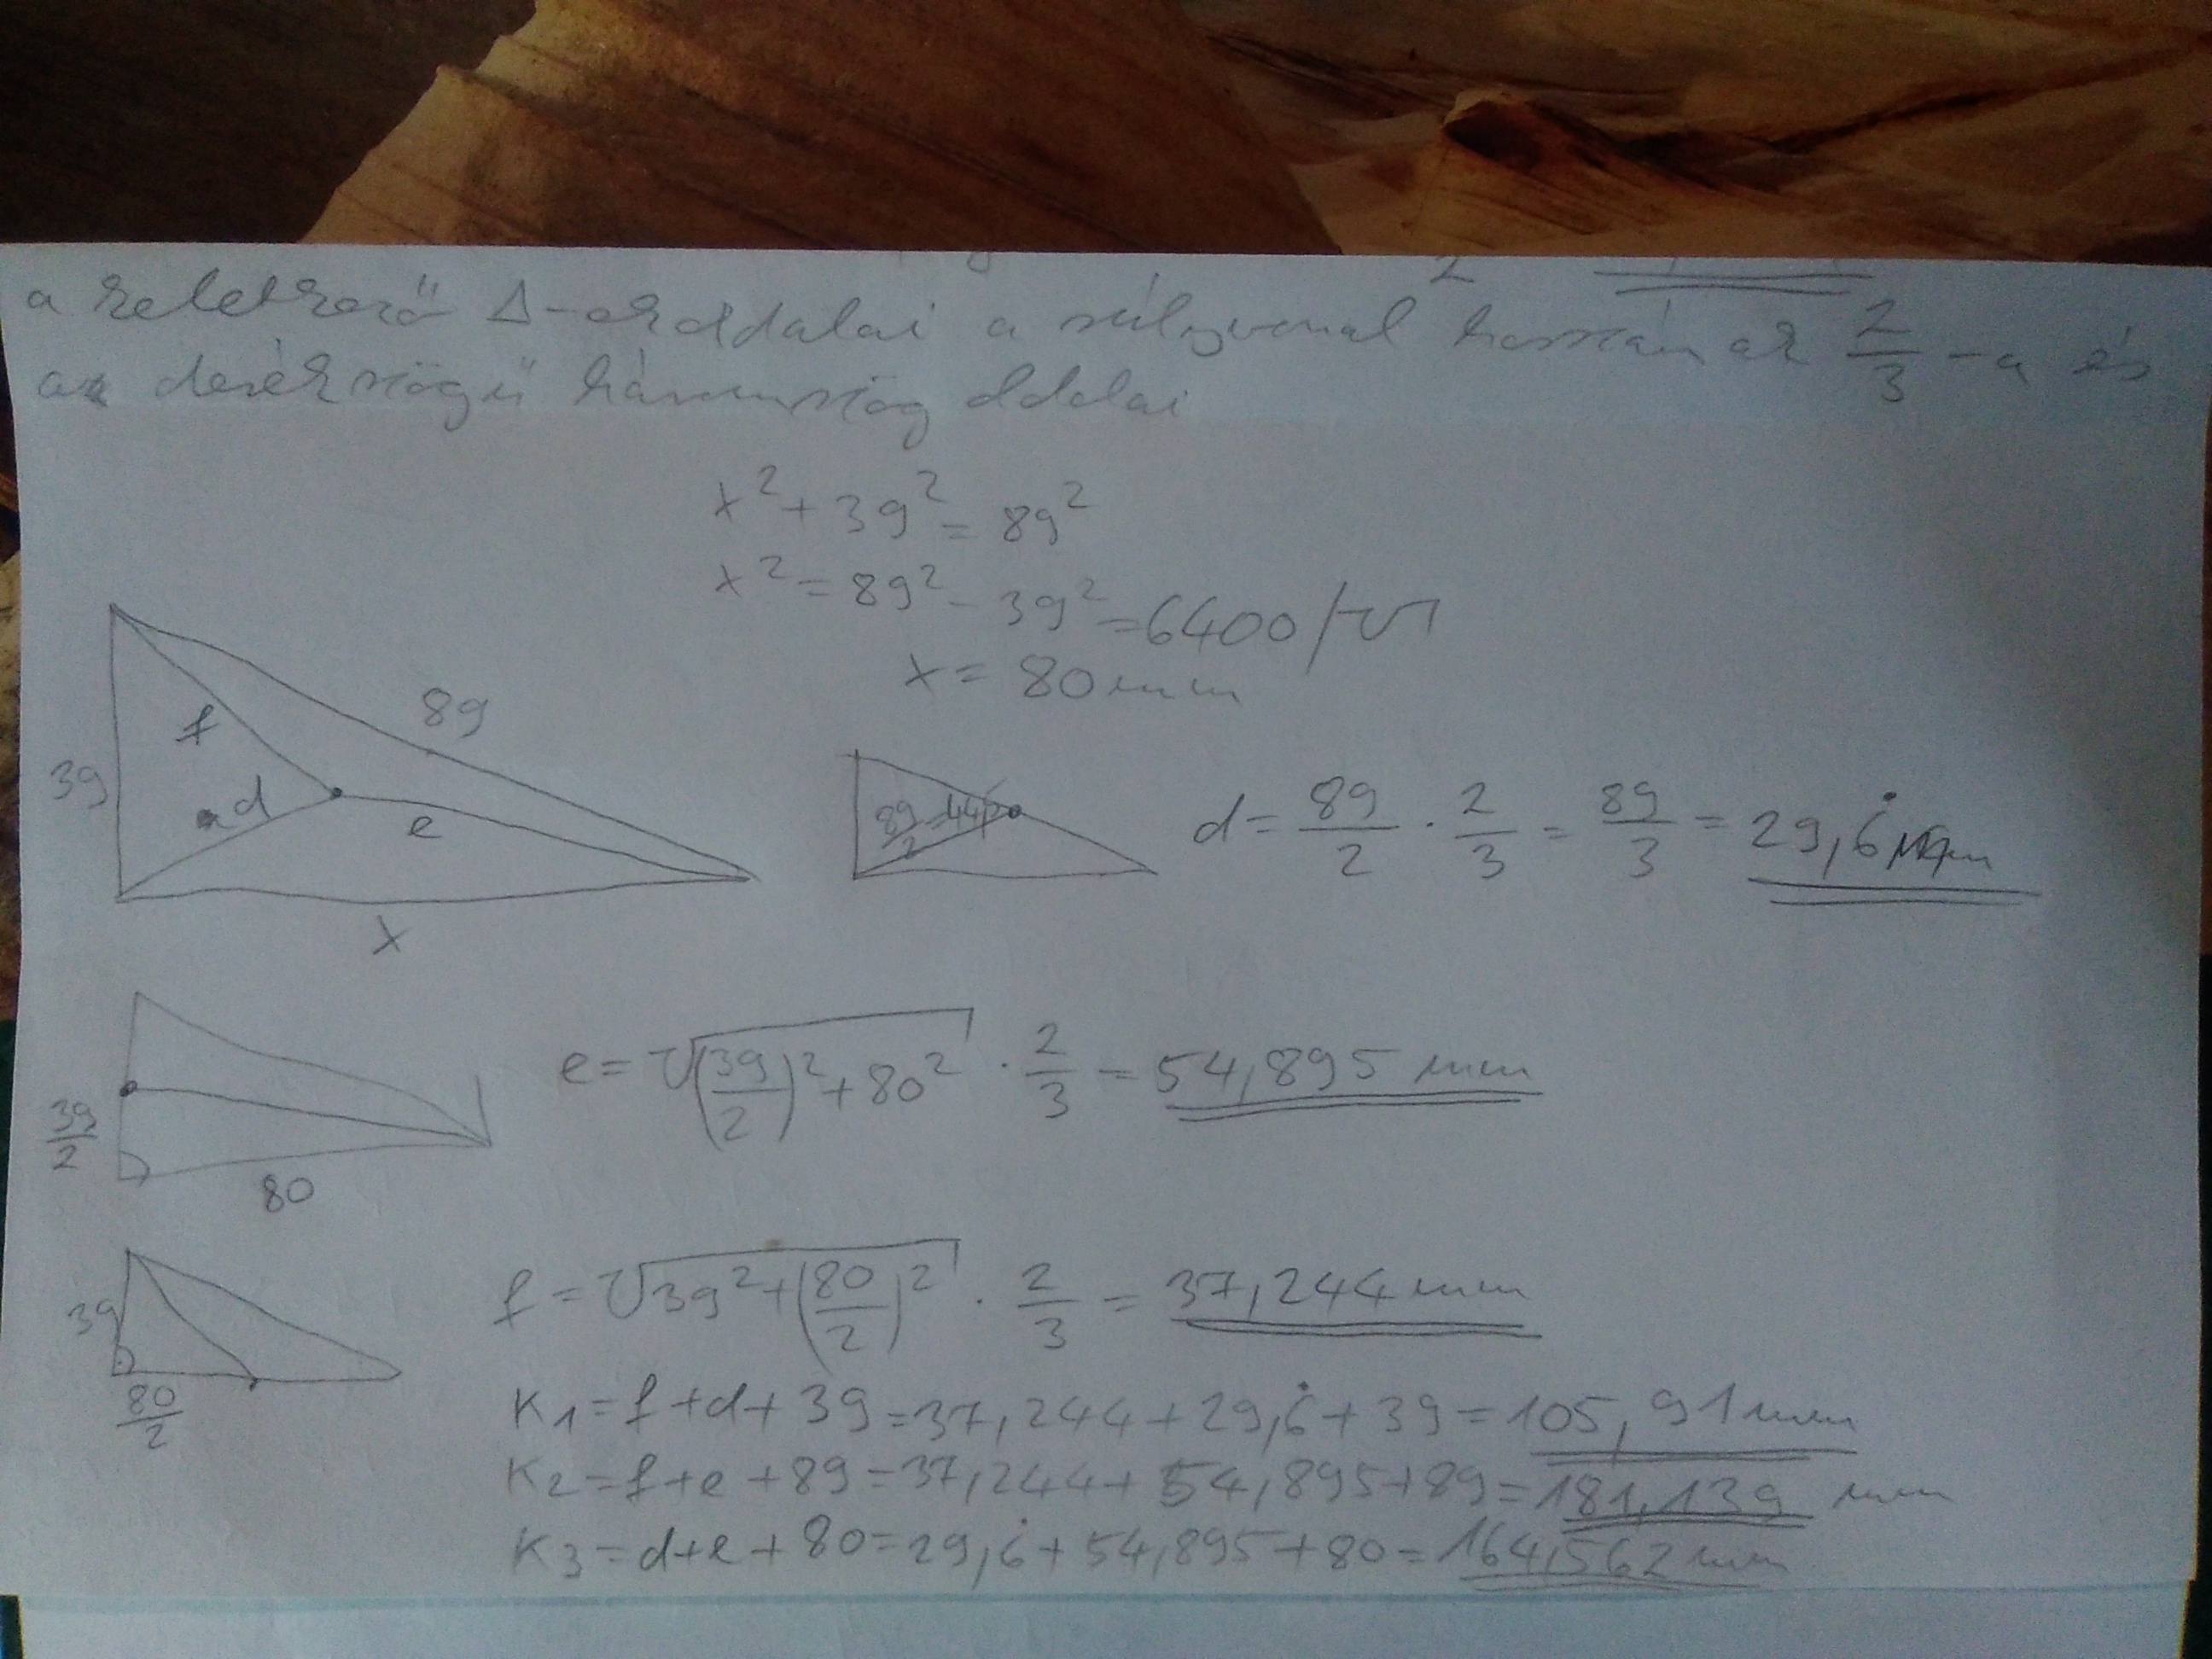 a keletkező Δ-ek oldalai a súlyvonal hosszának 2/3 -a és
a derékszögű háromszög oldalai
x² + 39² = 89²
x² = 89² - 39² = 6400 /√
x = 80mm
89
f
39
d
e
x
89/2 = 44,5
d = 89/2 · 2/3 = 89/3 = 29,6̇ mm
39/2
80
e = √((39/2)² + 80²) · 2/3 = 54,895 mm
39
80/2
f = √(39² + (80/2)²) · 2/3 = 37,244 mm
K₁ = f + d + 39 = 37,244 + 29,6̇ + 39 = 105,91 mm
K₂ = f + e + 89 = 37,244 + 54,895 + 89 = 181,139 mm
K₃ = d + e + 80 = 29,6̇ + 54,895 + 80 = 164,562 mm